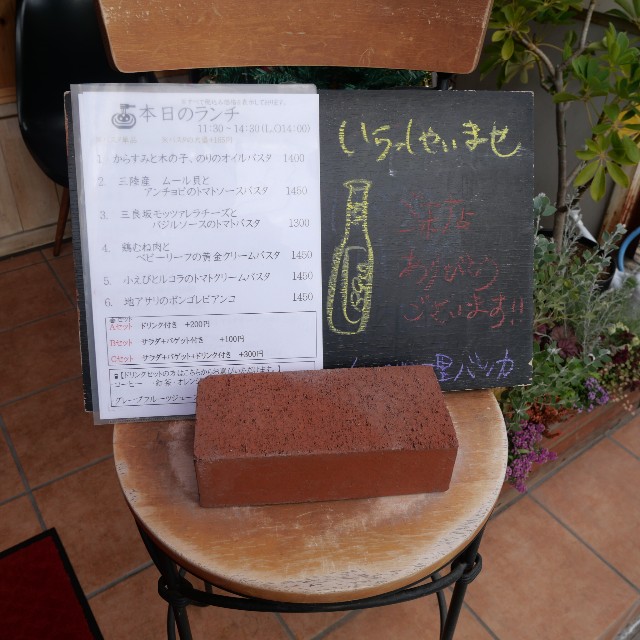 本日のランチ
11:30~14:30(L.O14:00)
1. からすみと木の子、のりのオイルパスタ 1400
2. 三陸産 ムール貝と
アンチョビのトマトソースパスタ 1450
3. 三良坂モッツアレラチーズと
バジルソースのトマトパスタ 1300
4. 鶏むね肉と
ベビーリーフの黄金クリームパスタ 1450
5. 小えびとルコラのトマトクリームパスタ 1450
6. 地アサリのボンゴレビアンコ 1450
Aセット ドリンク付き +200円
Bセット サラダ+バゲット付き +100円
Cセット サラダ+バゲット+ドリンク付き +300円
グレープフルーツジュー
いらっしゃいませ
ありがとう
ございます!!